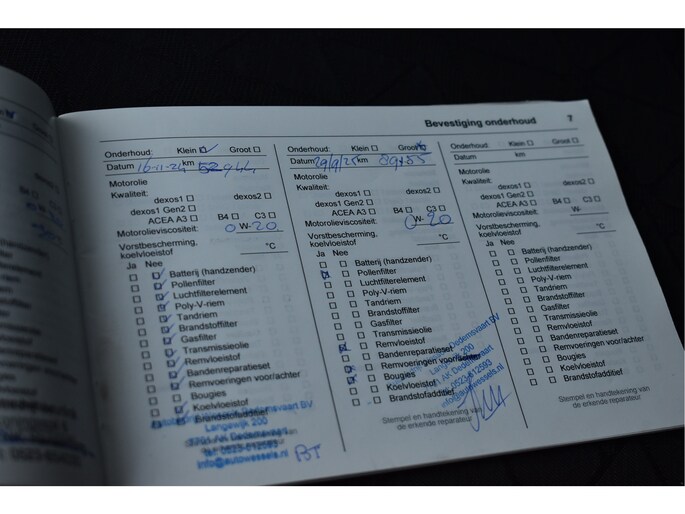 Bevestiging onderhoud 7
Onderhoud: Klein Groot
Datum 16-11-24 km
Motorolie
Kwaliteit:
dexos1 dexos2
dexos1 Gen2
ACEA A3 B4 C3
Motorolieviscositeit:
0 W- 20
Vorstbescherming,
koelvloeistof °C
Ja Nee
Batterij (handzender)
Pollenfilter
Luchtfilterelement
Poly-V-riem
Tandriem
Brandstoffilter
Gasfilter
Transmissieolie
Remvloeistof
Bandenreparatieset
Remvoeringen voor/achter
Bougies
Koelvloeistof
Brandstofadditief
Dedemsvaart BV
Langewijk 200
7701 AK Dedemsvaart
tel: 0523-612593
info@autowessels.nl
BT
Onderhoud: Klein Groot
Datum km
Motorolie
Kwaliteit:
dexos1 dexos2
dexos1 Gen2
ACEA A3 B4 C3
Motorolieviscositeit: 0 W- 20
Vorstbescherming,
koelvloeistof °C
Ja Nee
Batterij (handzender)
Pollenfilter
Luchtfilterelement
Poly-V-riem
Tandriem
Brandstoffilter
Gasfilter
Transmissieolie
Remvloeistof
Bandenreparatieset
Remvoeringen voor/achter
Bougies
Koelvloeistof
Brandstofadditief
Dedemsvaart BV
200
AK Dedemsvaart
0523-612593
info@autowessels.nl
Stempel en handtekening van
de erkende reparateur
Onderhoud: Klein Groot
Datum km
Motorolie
Kwaliteit:
dexos1 dexos2
dexos1 Gen2
ACEA A3 B4 C3
Motorolieviscositeit: W-
Vorstbescherming,
koelvloeistof °C
Ja Nee
Batterij (handzender)
Pollenfilter
Luchtfilterelement
Poly-V-riem
Tandriem
Brandstoffilter
Gasfilter
Transmissieolie
Remvloeistof
Bandenreparatieset
Remvoeringen voor/achter
Bougies
Koelvloeistof
Brandstofadditief
Stempel en handtekening van
de erkende reparateur